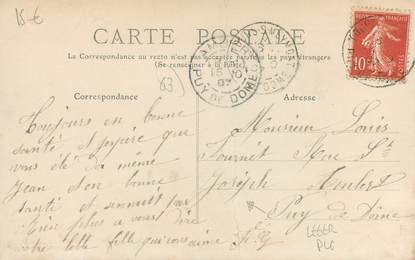 15 €
CARTE POSTALE
La Correspondance au recto n'est pas acceptée par tous les pays étrangers
(Se renseigner à la Poste)
AMBERT
15
07
PUY-DE-DOME
RÉPUBLIQUE FRANÇAISE
10
63
Correspondance
Adresse
Toujours en bonne
santé et j'espère que
vous êtes de même
Jean est en bonne
santé et
Rien plus a vous dire
votre belle fille qui vous aime
Monsieur Louis
Fournet Rue St
Joseph Ambert
Puy de Dôme
LEGER